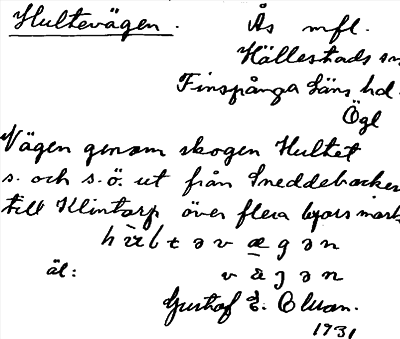 Hultevägen. Ås mfl.
Hällestads sn
Finspånga läns hd.
Ögl
Vägen genom skogen Hultet
s. och s.ö. ut från Sneddebacken
till Klintorp över flera byars mark
väl: v g ə n
Gustaf E. Olsson.
1931